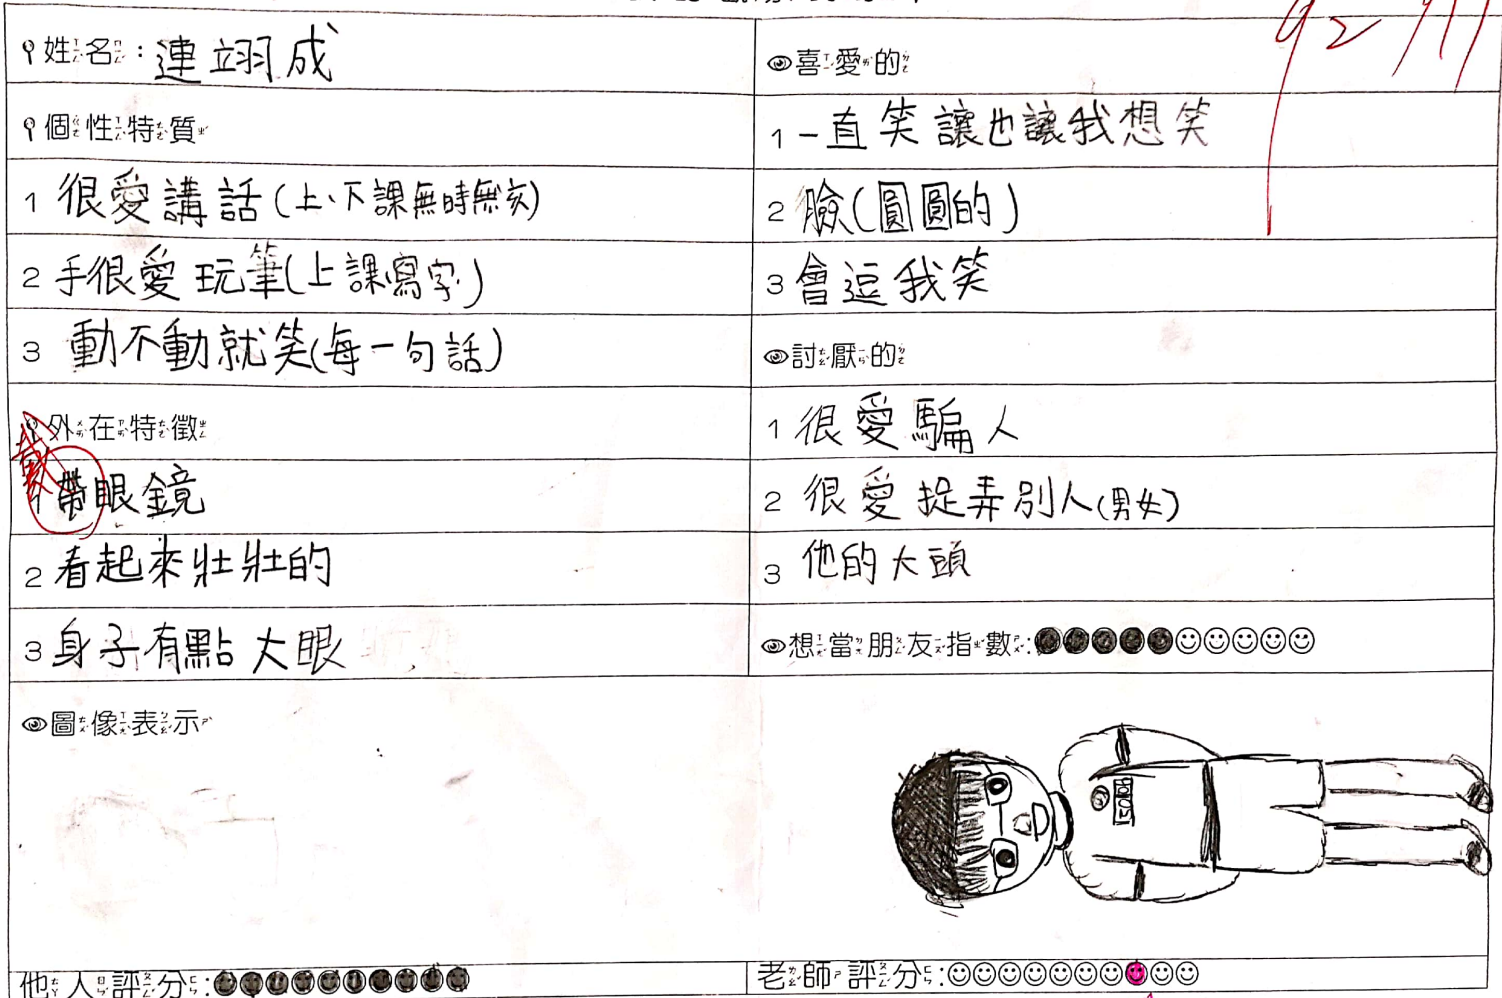 姓名：連翊成
個性特質
1 很愛講話(上、下課無時無刻)
2 手很愛玩筆(上課寫字)
3 動不動就笑(每一句話)
外在特徵
戴
1 帶眼鏡
2 看起來壯壯的
3 身子有點大眼
喜愛的
92
1 一直笑讓也讓我想笑
2 臉(圓圓的)
3 會逗我笑
討厭的
1 很愛騙人
2 很愛捉弄別人(男女)
3 他的大頭
想當朋友指數：
圖像表示
他人評分：
老師評分：